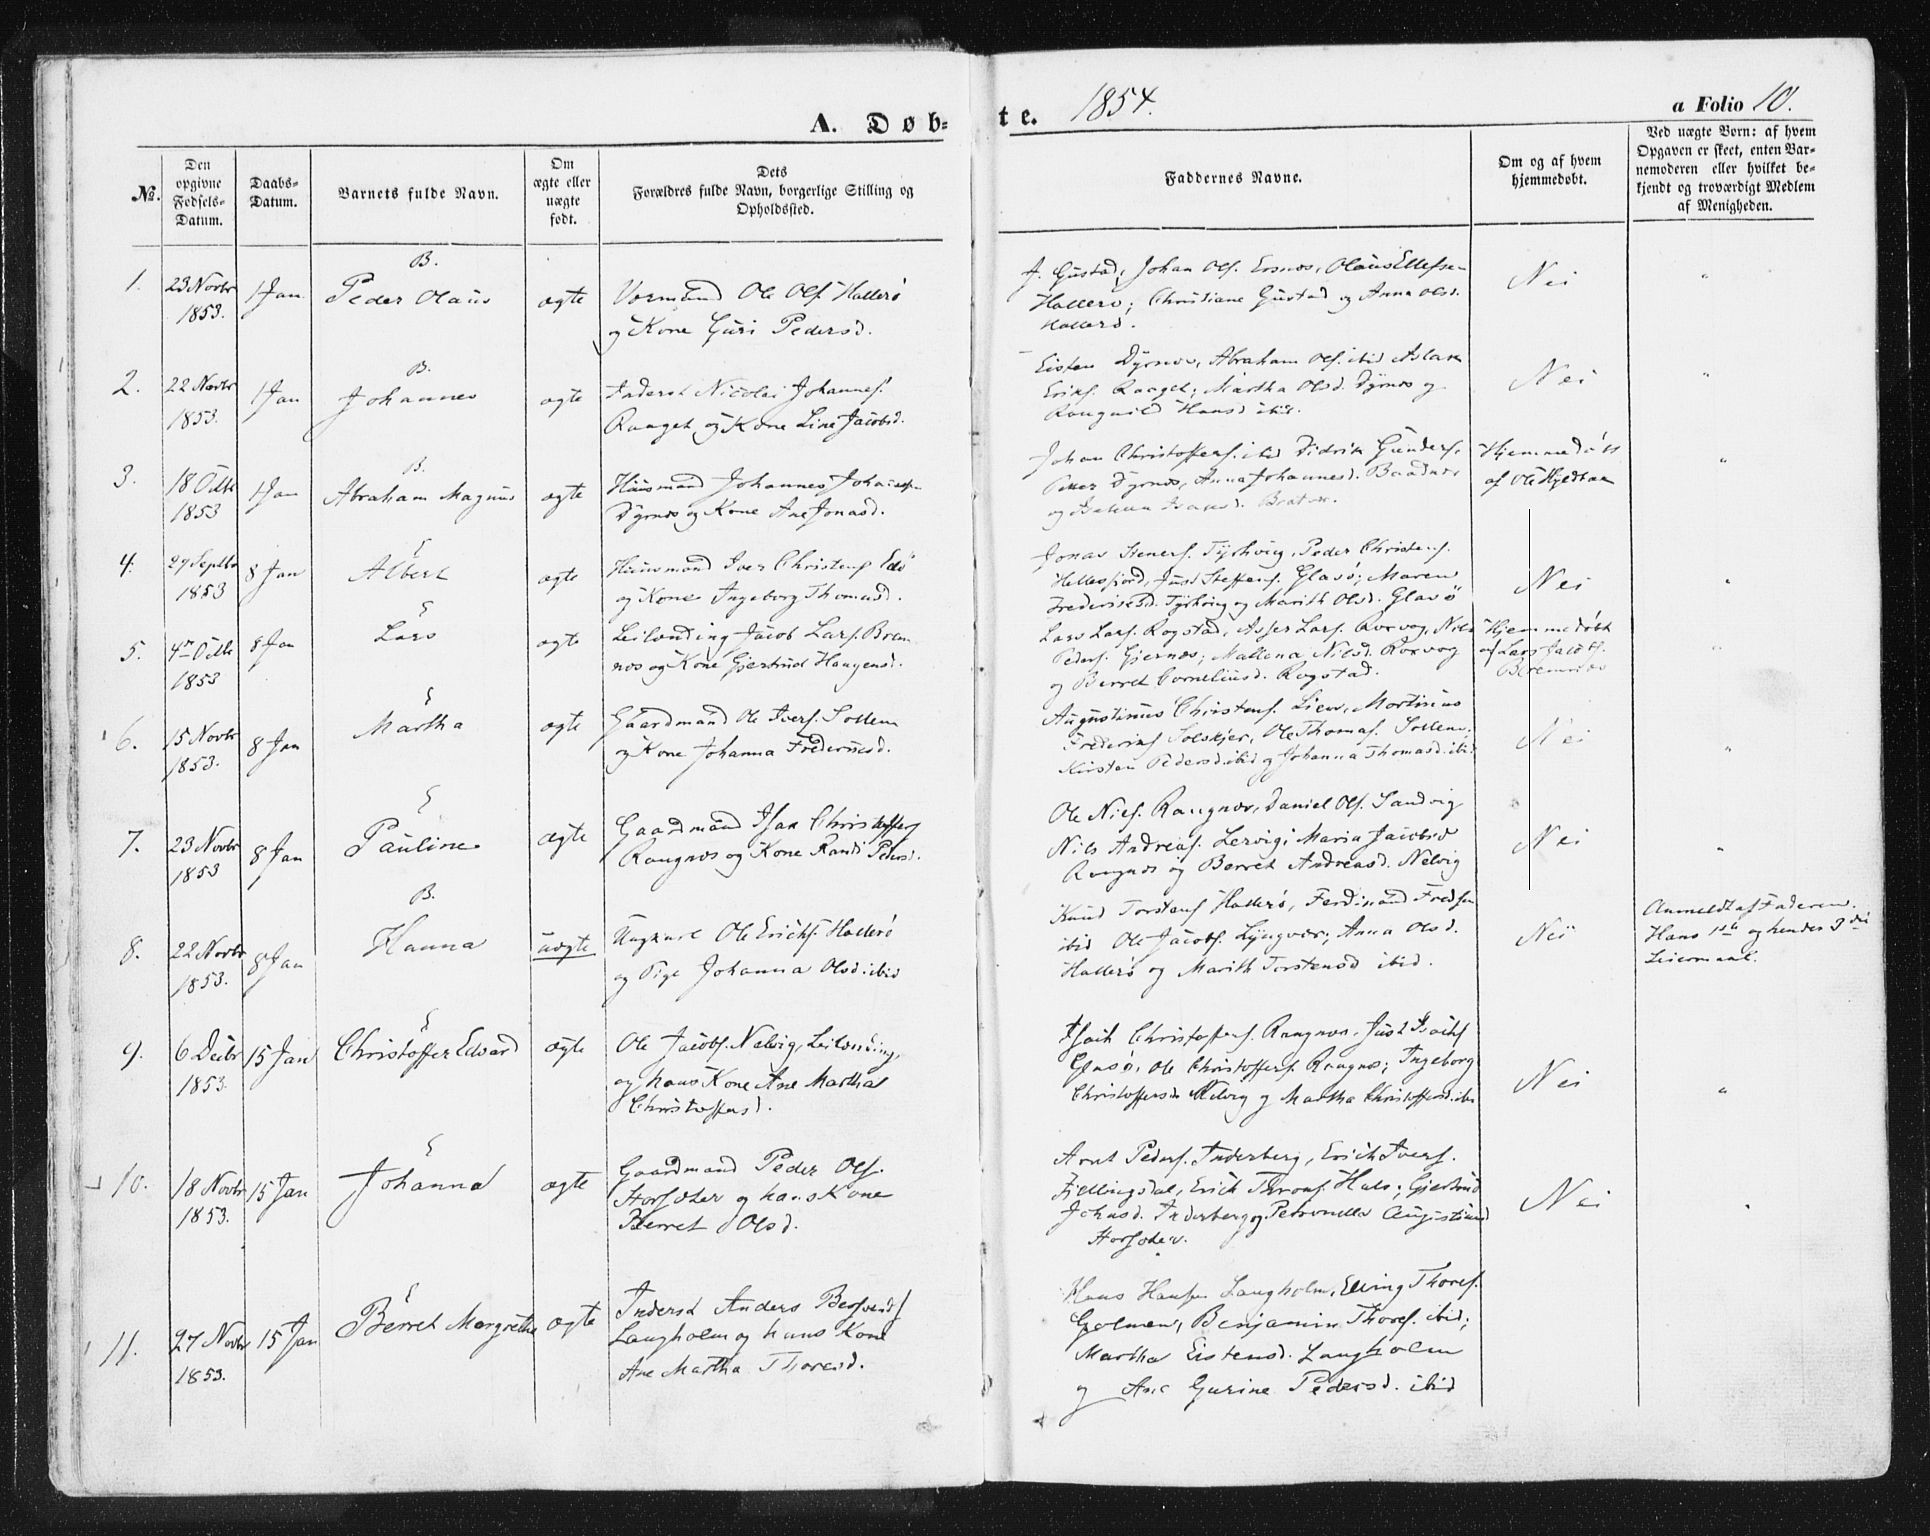 A. Døb-
te. 1854.
a Folio 10.
№.
Den opgivne Fødsels-Datum.
Daabs-Datum.
Barnets fulde Navn.
Om ægte eller uægte født.
Dets Forældres fulde Navn, borgerlige Stilling og Opholdssted.
Faddernes Navne.
Om og af hvem hjemmedøbt.
Ved uægte Børn: af hvem Opgaven er skeet, enten Barnemoderen eller hvilket bekjendt og troværdigt Medlem af Menigheden.
1. 23 Novbr 1853. 1 Jan
B.
Peder Olaus
ægte
Ole Ols. Hallerø
og Kone Guri Pedersd.
J. Gustad, Johan Ols. Ersnæs, Olaus Ellefsen
Hallerø; Christiane Gustad og Anna Olsd.
Hallerø.
Nei
"
2. 22 Novbr 1853. 1 Jan
B.
Johannes
ægte
Inderst Nicolai Johannes.
Raaget og Kone Line Jacobsd.
Eisten Dyrnæs, Abraham Ols. ibid Aslak
Eriks. Raaget; Martha Olsd. Dyrnæs og
Raagnild Hansd ibid.
Nei
"
3. 18 Octbr 1853 1 Jan
B.
Abraham Magnus
ægte
Huusmand Johannes
Dyrnæs og Kone Ane Jonasd.
Johan Christoffers. ibid Didrik Gunders.
Petter Dyrnæs, Anna Johannesd. Baadnæs
og
Hjemmedøbt
af Ole
"
4. 27 Septbr 1853 8 Jan
E
Albert
ægte
Huusmand Iver Christens. Edø
og Kone Ingeborg Thomasd.
Jonas Steners. Tyrhoug, Peder Christens.
Hellesfjord, Just Steffens. Glasø; Maren
Frederiksd. Tyrhoug og Marith Olsd. Glasø
Nei
"
5. 4de Octbr 1853 8 Jan
E
Lars
ægte
Leilænding Jacob Lars. Brem
næs og Kone Gjertrud Haagensd.
Lars Lars. Rogstad, Asser Lars. Roxvog, Nils
Peders. Gjernæs; Mallena Nilsd. Roxvog
og Berret Corneliusd. Rogstad.
Hjemmedøbt
af Lars Jacobs.
Bremnæs
"
6. 15 Novbr 1853. 8 Jan
E
Martha
ægte
Gaardmand Ole Ivers. Sollem
og Kone Johanna Frederiksd.
Augustinus Christens. Lien, Mortinius
Frederiks Solskjer, Ole Thomas. Sollem,
Kirsten Pedersd. ibid og Johanna Thomasd. ibid
Nei
"
7. 23 Novbr 1853 8 Jan
E
Pauline
ægte
Gaardmand Isak Christoffers
Rangnæs og Kone Randi Pedersd.
Ole Niels. Rangnæs, Daniel Ols. Sandvig
Nils Andreas. Lervig; Maria Jacobsd
Rangnæs og Berret Andreasd. Nelvig
Nei
"
8. 22 Novbr 1853. 8 Jan
B.
Hanna
uægte
Ungkarl Ole Ericks. Hallerø
og Pige Johanna Olsd. ibid
Knud Torstens Hallerø, Ferdinand
ibid Ole Jacobs. Lyngvær; Anna Olsd.
Hallerø og Marith Torstensd ibid.
Nei
Anmeldt af Faderen.
Hans 1ste og hendes 3die
Leiermaal.
9. 6 Decbr 1853. 15 Jan
E
Christoffer Edvard
ægte
Ole Jacobs. Nelvig, Leilænding,
og hans Kone Ane Martha
Christoffersd.
Isach Christoffers. Rangnæs, Just Isachs
Glasø, Ole Christoffers. Rangnæs; Ingeborg
Christoffersd. Nelvig og Martha Christoffersd. ibid
Nei
"
10. 18 Novbr 1853. 15 Jan
E
Johanna
ægte
Gaardmand Peder Ols.
Storsæter og hans Kone
Berret Olsd.
Arnt Peders. Inderberg, Erich Ivers.
Fjellingsdal, Erich Hals; Gjertrud
Johnsd. Inderberg og Petronella
Storsæter.
Nei
11. 27 Novbr 1853. 15 Jan
E
Berret Margrethe
ægte
Inderst Anders
Langholm og hans Kone
Ane Martha Thoresd.
Hans Hansen Langholm, Elling Thores.
Golmen, Benjamin Thores. ibid;
Martha Eistensd. Langholm
og Ane Gurine Pedersd. ibid